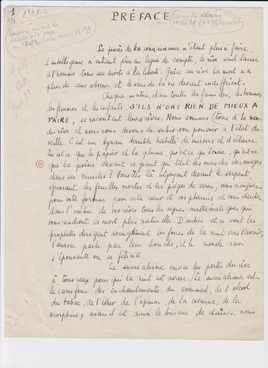 PRÉFACE
Le procès de la connaissance n'étant plus à faire,
l'intelligence n'entrant plus en ligne de compte, le rêve seul laisse
à l'homme tous ses droits à la liberté. Grâce au rêve la mort n'a
plus de sens obscur et le sens de la vie devient indifférent.
Chaque matin, dans toutes les familles, les hommes,
les femmes et les enfants, S'ILS N'ONT RIEN DE MIEUX A
FAIRE, se racontent leurs rêves. Nous sommes tous à la merci
du rêve et nous nous devons de subir son pouvoir à l'état de
veille. C'est un tyran terrible habillé de miroirs et d'éclairs.
Qu'est-ce que le papier et la plume, qu'est-ce qu'écrire, qu'est-
ce que la poésie devant ce géant qui tient les muscles des nuages
dans ses muscles? Vous êtes là bégayant devant le serpent,
ignorant les feuilles mortes et les pièges de verre, vous craignez
pour votre fortune, pour votre cœur et vos plaisirs et vous cherchez
dans l'ombre de vos rêves tous les signes mathématiques qui
vous rendront la mort plus naturelle. D'autres et ce sont les
prophètes dirigent aveuglément les forces de la nuit vers l'avenir,
l'aurore parle par leur bouche, et le monde ravi
s'épouvante ou se félicite.
Le surréalisme ouvre les portes du rêve
à tous ceux pour qui la nuit est avare. Le surréalisme est
le carrefour des enchantements du sommeil, de l'alcool,
du tabac, de l'éther, de l'opium, de la cocaïne, de la
morphine; mais il est aussi le briseur de chaînes, nous